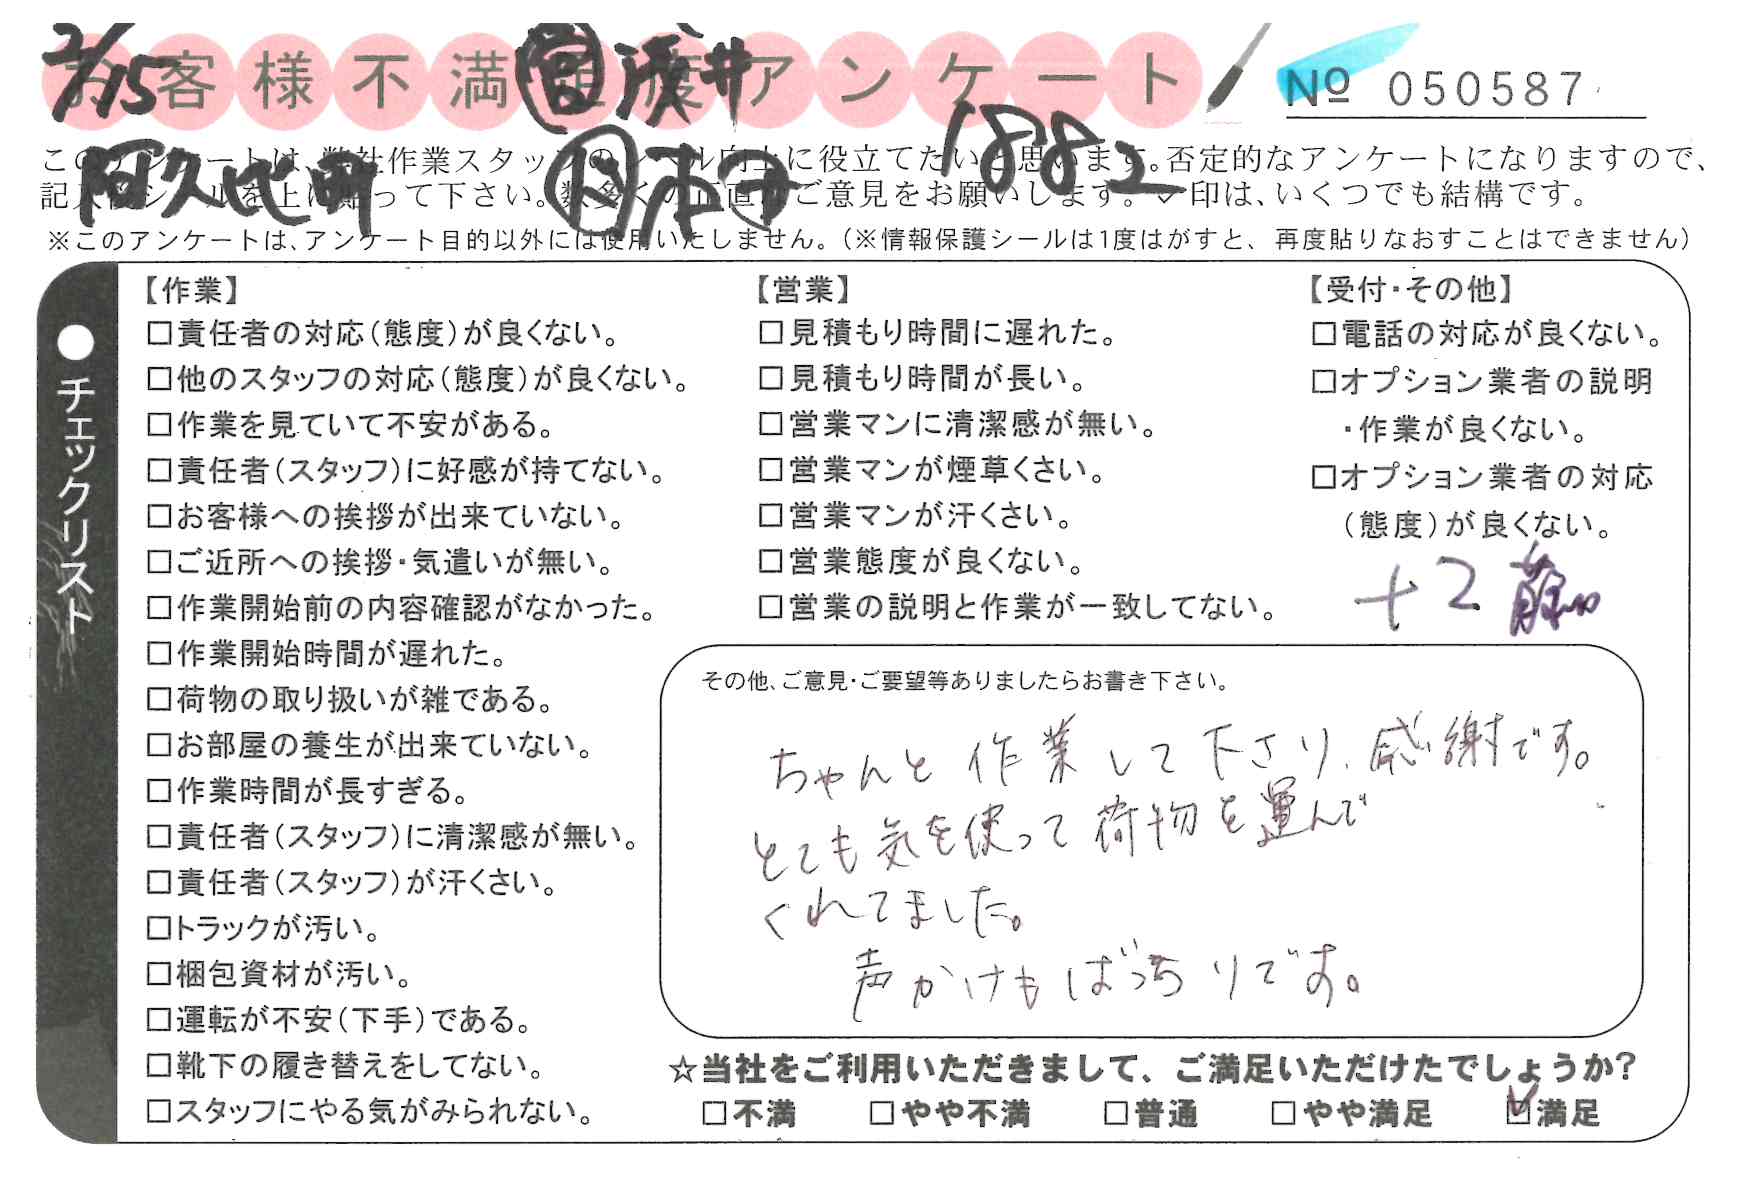 2/15 営 濱井
お客様不満足度アンケート
№ 050587
阿久比町 作 本田 1882
このアンケートは、弊社作業スタッフのレベル向上に役立てたいと思います。否定的なアンケートになりますので、
記入後シールを上に貼って下さい。数多くの正直なご意見をお願いします。✓印は、いくつでも結構です。
※このアンケートは、アンケート目的以外には使用いたしません。（※情報保護シールは1度はがすと、再度貼りなおすことはできません）
●チェックリスト
【作業】
□責任者の対応（態度）が良くない。
□他のスタッフの対応（態度）が良くない。
□作業を見ていて不安がある。
□責任者（スタッフ）に好感が持てない。
□お客様への挨拶が出来ていない。
□ご近所への挨拶・気遣いが無い。
□作業開始前の内容確認がなかった。
□作業開始時間が遅れた。
□荷物の取り扱いが雑である。
□お部屋の養生が出来ていない。
□作業時間が長すぎる。
□責任者（スタッフ）に清潔感が無い。
□責任者（スタッフ）が汗くさい。
□トラックが汚い。
□梱包資材が汚い。
□運転が不安（下手）である。
□靴下の履き替えをしてない。
□スタッフにやる気がみられない。
【営業】
□見積もり時間に遅れた。
□見積もり時間が長い。
□営業マンに清潔感が無い。
□営業マンが煙草くさい。
□営業マンが汗くさい。
□営業態度が良くない。
□営業の説明と作業が一致してない。
【受付・その他】
□電話の対応が良くない。
□オプション業者の説明
・作業が良くない。
□オプション業者の対応
（態度）が良くない。
+2
その他、ご意見・ご要望等ありましたらお書き下さい。
ちゃんと作業して下さり、感謝です。
とても気を使って荷物を運んで
くれてました。
声かけもばっちりです。
☆当社をご利用いただきまして、ご満足いただけたでしょうか？
□不満 □やや不満 □普通 □やや満足 ☑満足